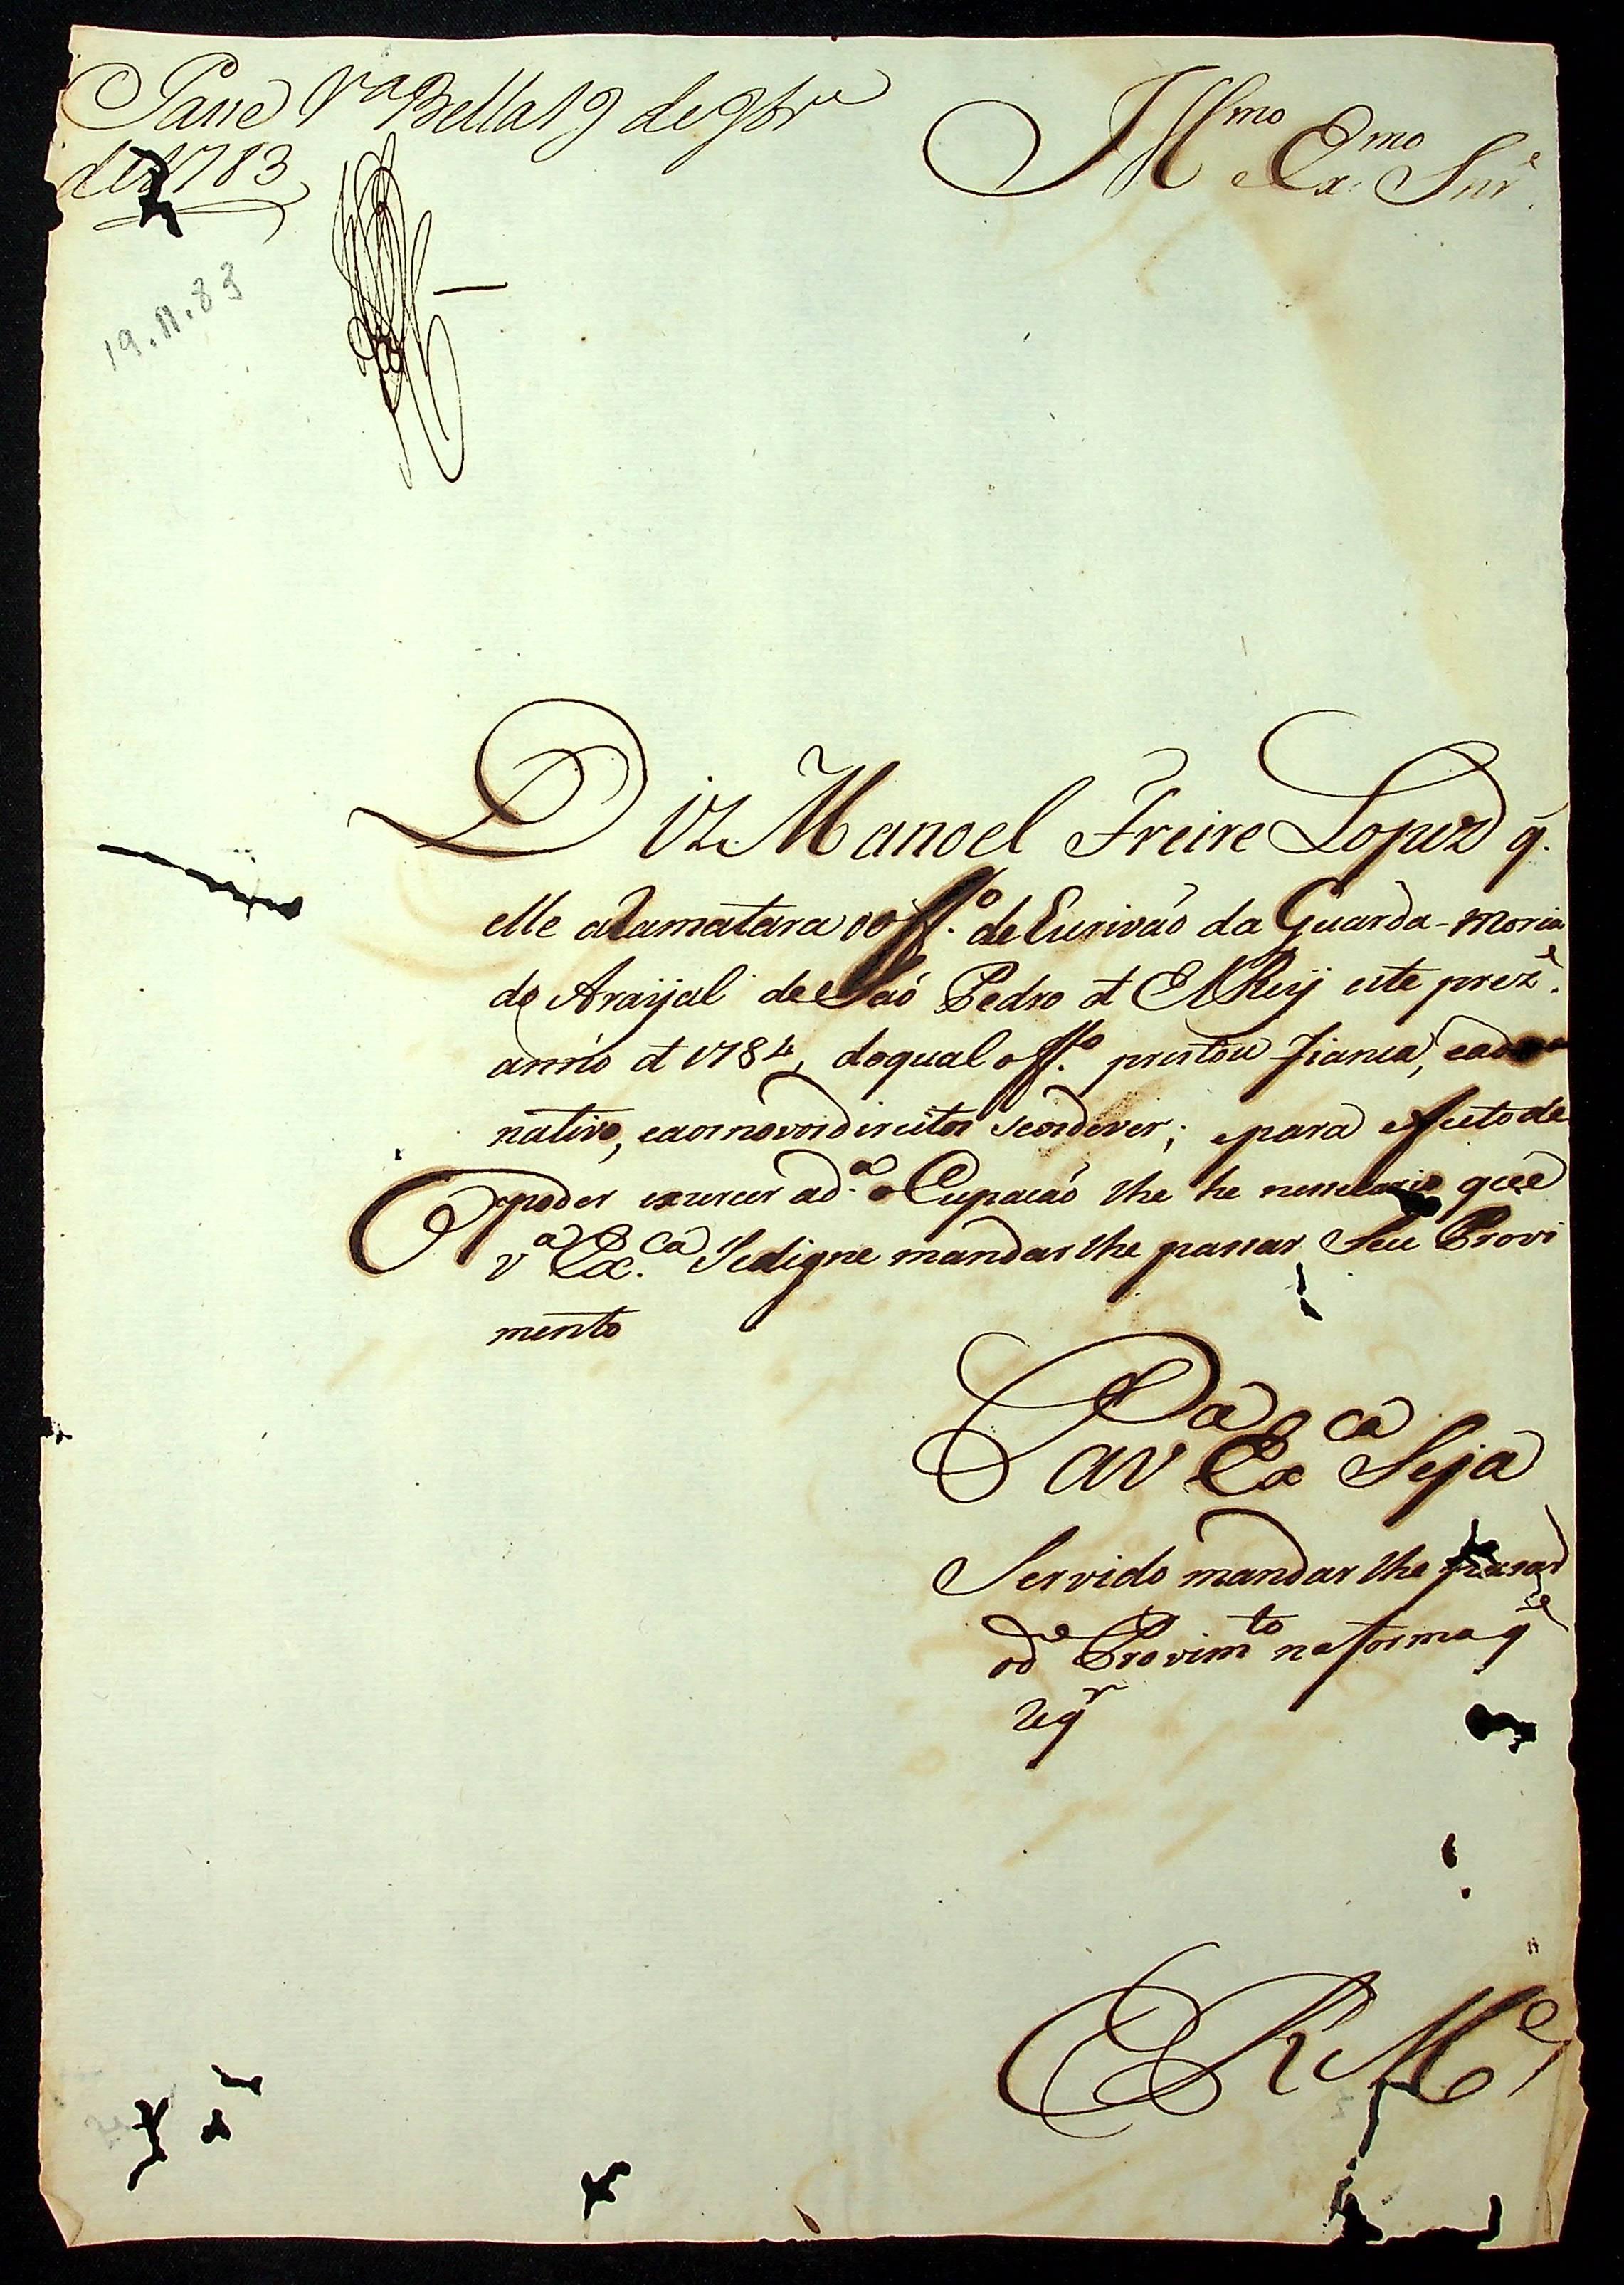 Passe V.ª Bella 19 de 9br.º
de 1783
19.11.83
Ill.mo e Ex.mo Snr.
Diz Manoel Freire Lopes q.
elle aRamatara o off.º de Escrivaõ da Guarda-moria
do Arayal de Saõ Pedro d ElRey este prez.e
anno d 1784, do qual off.º prestou fiança, eado
nativo, eaos novos direitos seos dever; epara efeito de
poder exercer ad.ª oCupaçaõ lhe he nessesario que
V.ª Ex.ca Sedigne mandar lhe passar Seu Provi
mento
P.a V Ex.ca Seja
Servido mandar lhe passar
o d.e Provim.to na forma q.e
req.r
E R M.ce